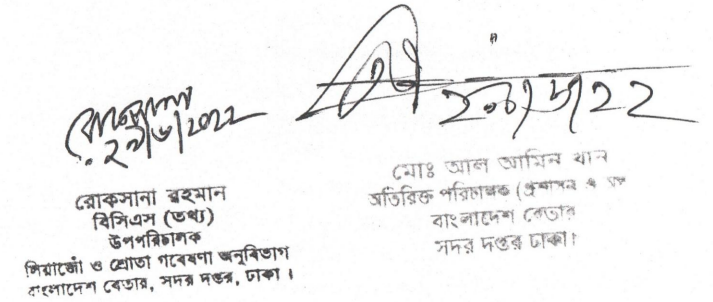 রোকসানা
২৯/৬/২০২২
রোকসানা রহমান
বিসিএস (তথ্য)
উপপরিচালক
লিয়াজোঁ ও শ্রোতা গবেষণা অনুবিভাগ
বাংলাদেশ বেতার, সদর দপ্তর, ঢাকা।
মোঃ আল আমিন খান
অতিরিক্ত পরিচালক (প্রশাসন ও
বাংলাদেশ বেতার
সদর দপ্তর ঢাকা।